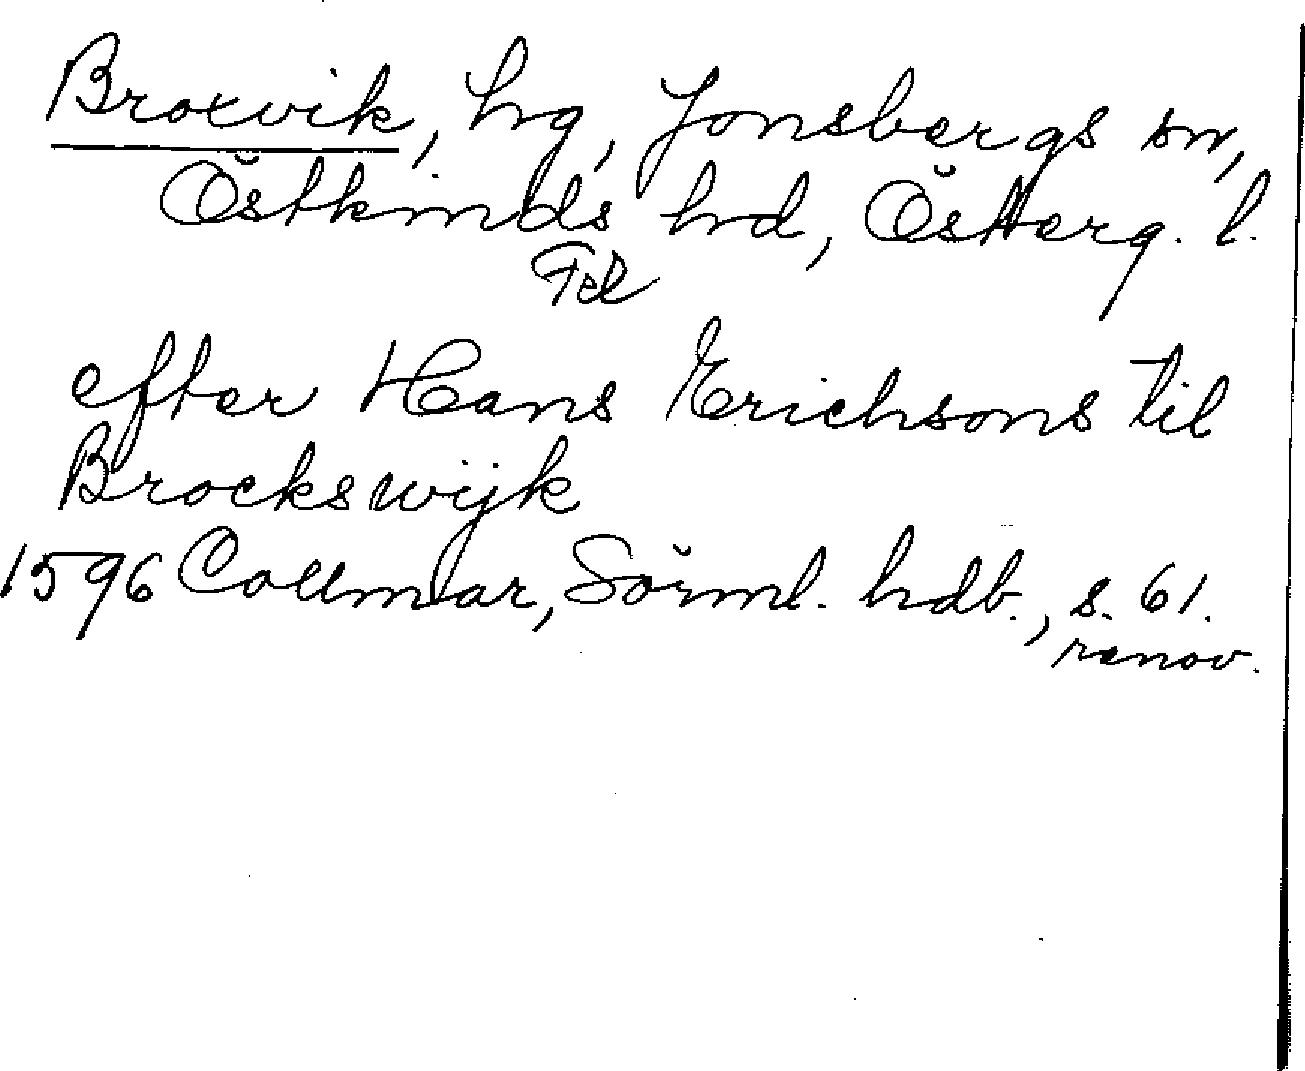 Broxvik, hg, Jonsbergs sn,
Östkinds hd, Österg. l.
Fil
efter Hans Erichsons til
Brockswijk
1596 Collmar, Sörml. hdb., s. 61.
renov.